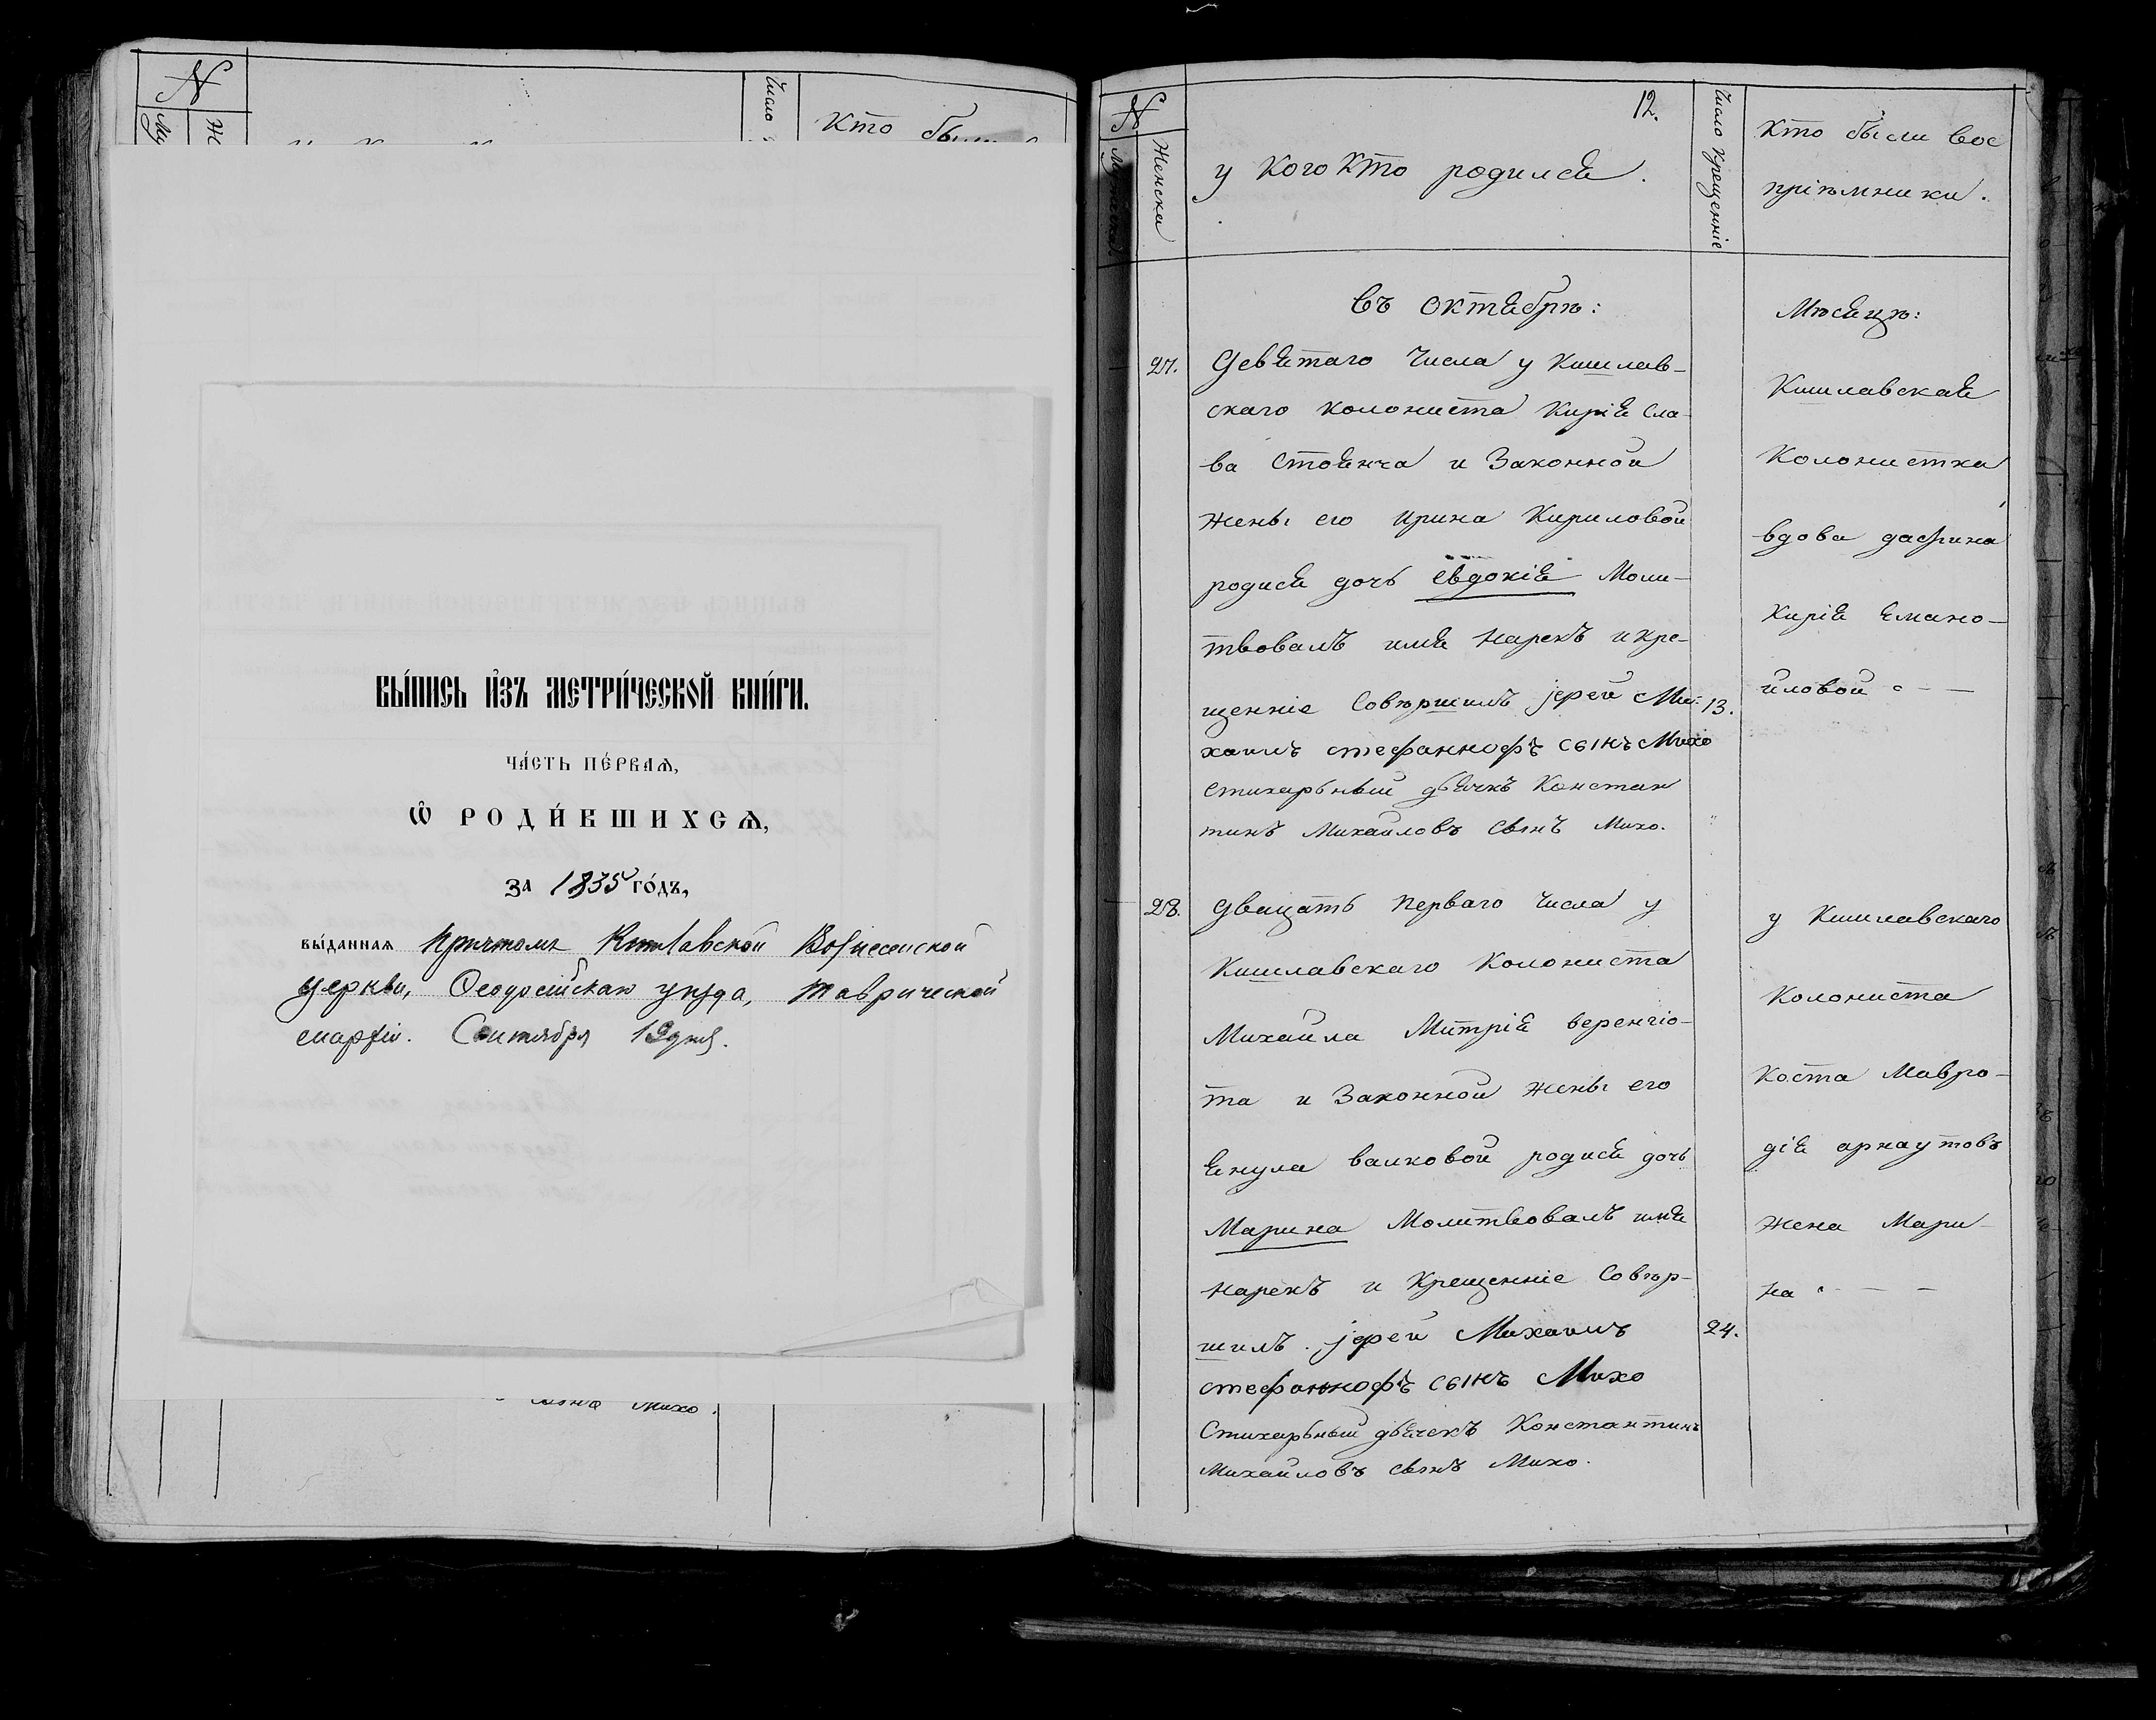 N
Му
Же
Число
Кто бы
ВЫ́ПИСЬ И҆ЗЪ МЕТРИ́ЧЕСКОЙ КНИ́ГИ.
ЧА́СТЬ ПЕ́РВАѦ,
Ѽ РОДИ́ВШИХСѦ,
ЗА 1835 ГО́ДЪ,
ВЫ́ДАННАѦ Причтомъ Кишлавской Вознесенской
церкви, Ѳеодосійскаго уѣзда, Таврической
епархіи. Сентября 19 дня.
сынъ Михо.
12.
N
Мужеска
Женска
у кого кто родился.
Число крещеніе
Кто были вос
пріѣмники.
въ октябрѣ:
Мѣсяцѣ:
27.
Девятаго числа у Кишлав-
скаго колониста Кирія Сла-
ва Стоянча и Законной
жены его Ирина Кириловой
родися дочь Евдокія Моли-
твовалъ имя нарекъ и кре-
щенніе Совѣршилъ іерей Ми-
хаилъ стефанновъ сынъ Михо
стихарьный дьячкъ Констан
тинъ Михайловъ сынъ Михо.
13.
Кишлавская
Колонистка
вдова дафина
Кирія Емано-
иловой
28.
Двацать перваго числа у
Кишлавскаго Колониста
Михаила Митрія веренгіо-
та и Законной жены его
Янула валковой родися дочь
Марина Молитвовалъ имя
нарекъ и Крещенніе Совѣр-
шилъ. іерей Михаилъ
стефанновъ сынъ Михо
Стихарьный дьячекъ Константинъ
Михайловъ сынъ Михо.
24.
у Кишлавскаго
Колониста
Коста Мавро-
дія арнаутовъ
жена Мари-
на